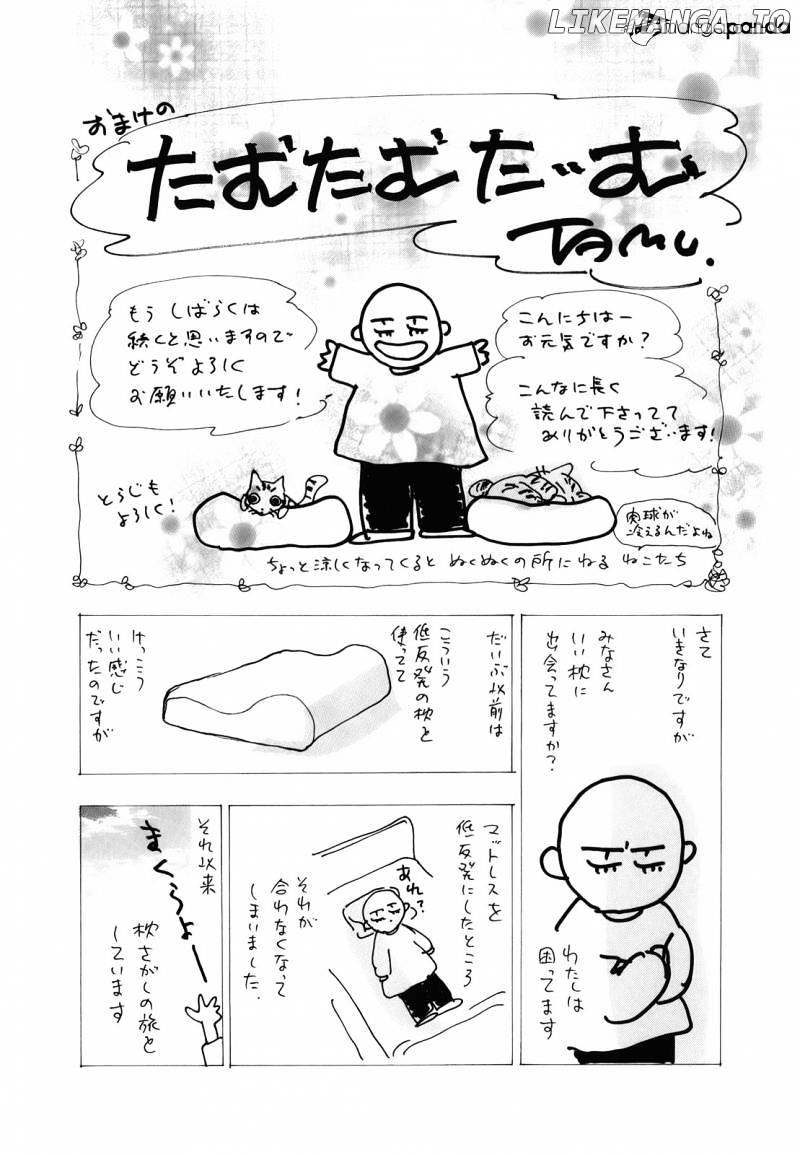 LIKEMANGA.IO
mangapanda
おまけの
たむたむたいむ
TAMU.
こんにちはー
お元気ですか？
こんなに長く
読んで下さってて
ありがとうございます！
もう しばらくは
続くと思いますので
どうぞよろしく
お願いいたします！
とらじも
よろしく！
肉球が
冷えるんだよね
ちょっと涼しくなってくると ぬくぬくの所にねる ねこたち
さて
いきなりですが
みなさん
いい枕に
出会ってますか？
わたしは
困ってます
だいぶ以前は
こういう
低反発の枕を
使ってて
けっこう
いい感じ
だったのですが
マットレスを
低反発にしたところ
あれ？
それが
合わなくなって
しまいました.
それ以来
まくらょー
枕さがしの旅を
しています